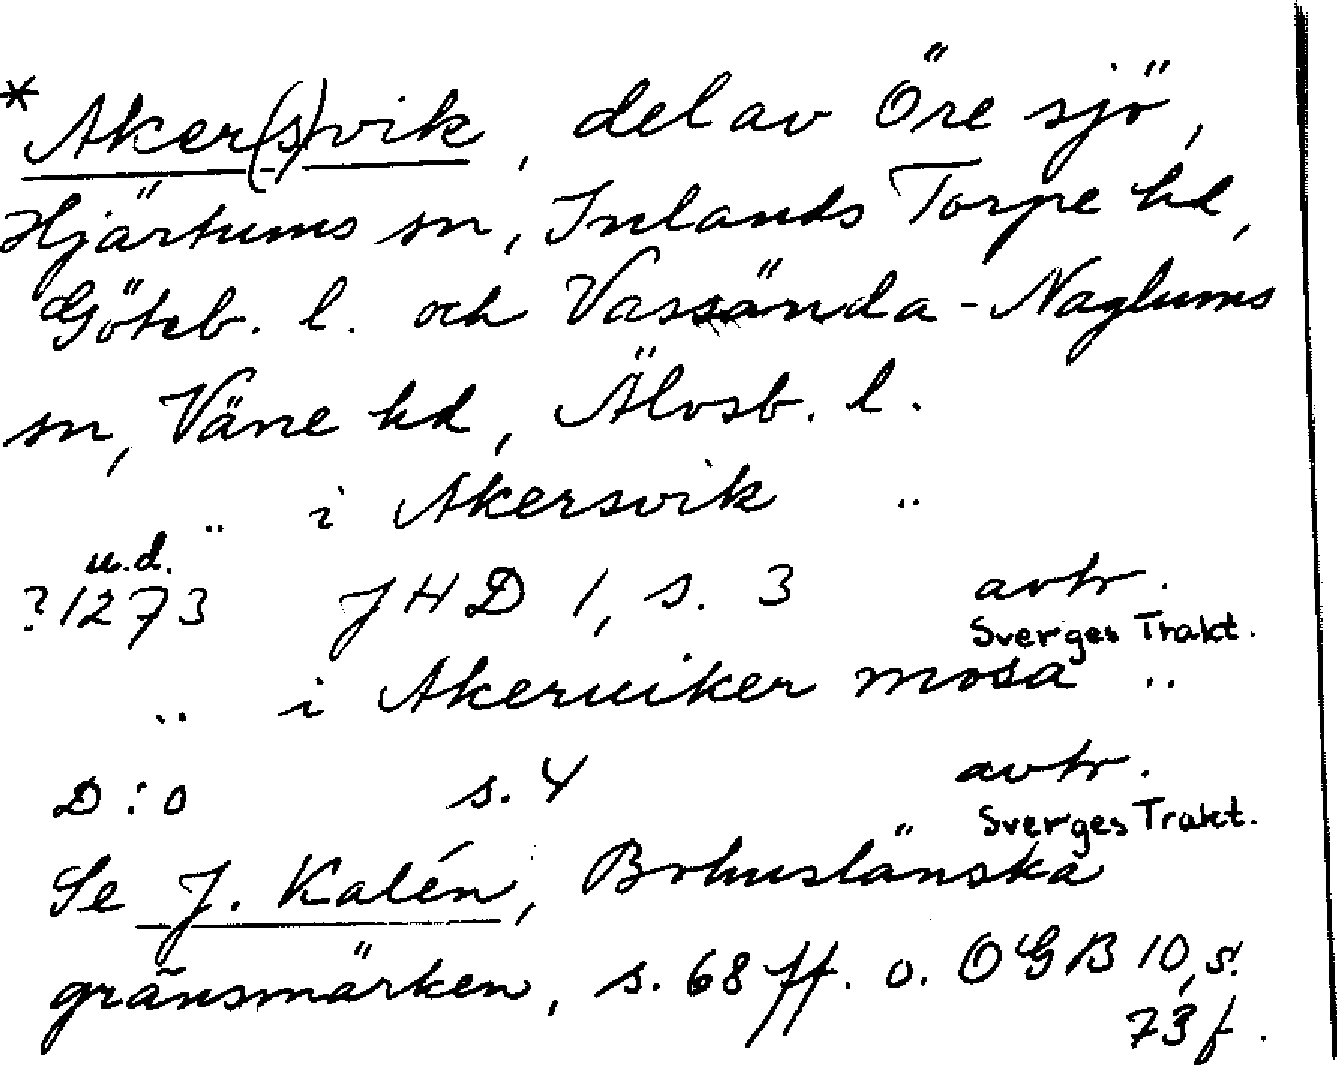 * Aker(s)vik, del av Öre sjö,
Hjärtums sn, Inlands Torpe hd,
Göteb. l. och Vassända-Naglums
sn, Väne hd, Älvsb. l.
.. i Akersvik ..
u.d.
?1273 JHD 1, s. 3 avtr.
Sverges Trakt.
.. i Akeruiker mosa ..
D:o s. 4 avtr.
Sverges Trakt.
Se J. Kalén, Bohuslänska
gränsmärken, s. 68 ff. o. OGB 10, s.
73 f.